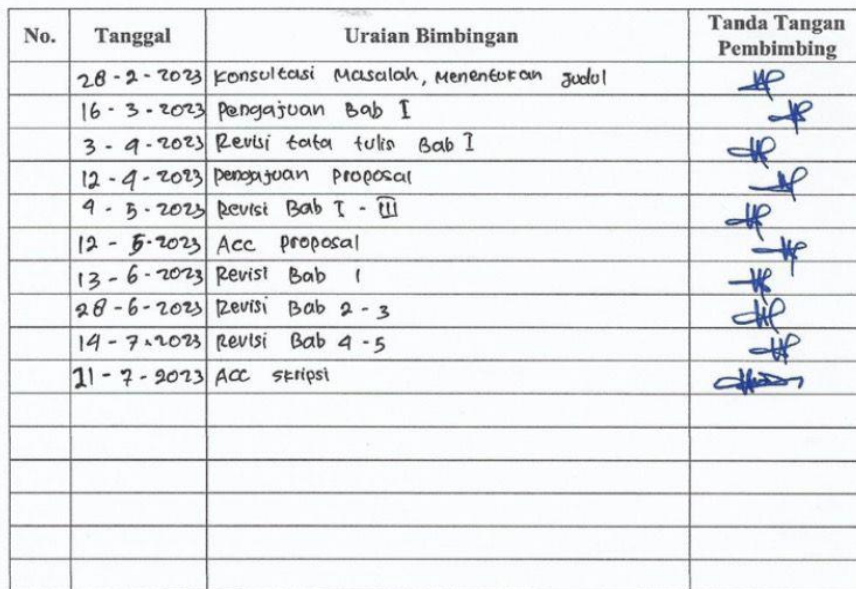 No. Tanggal Uraian Bimbingan Tanda Tangan Pembimbing
28 - 2 - 2023 Konsultasi Masalah, Menentukan Judul
16 - 3 - 2023 Pengajuan Bab I
3 - 4 - 2023 Revisi tata tulis Bab I
12 - 4 - 2023 Pengajuan Proposal
4 - 5 - 2023 Revisi Bab I - III
12 - 5 - 2023 Acc proposal
13 - 6 - 2023 Revisi Bab 1
28 - 6 - 2023 Revisi Bab 2 - 3
14 - 7 - 2023 Revisi Bab 4 - 5
21 - 7 - 2023 Acc skripsi